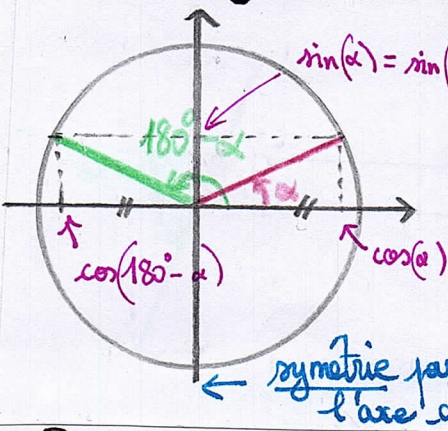 sin(α) = sin(
180° - α
α
cos(180° - α)
cos(α)
symétrie pa
l'axe